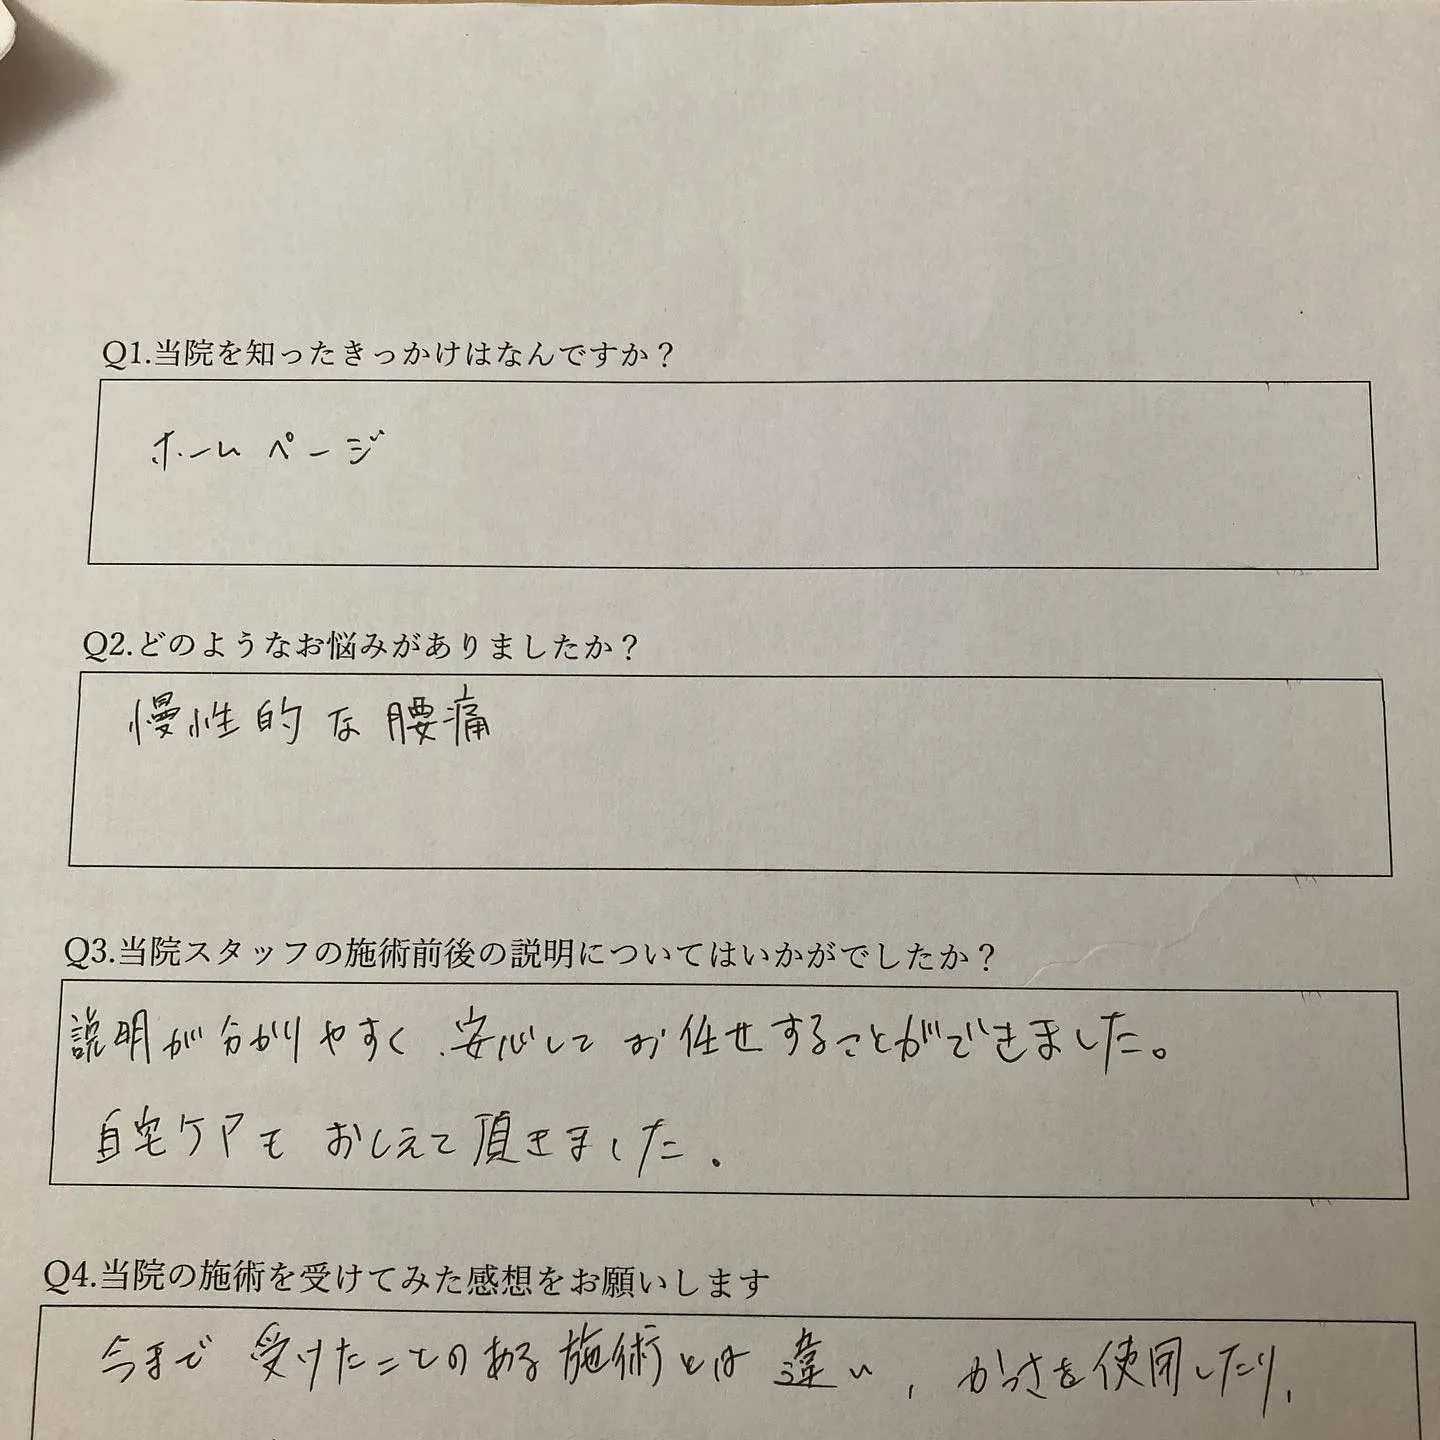 Q1.当院を知ったきっかけはなんですか？
ホームページ
Q2.どのようなお悩みがありましたか？
慢性的な腰痛
Q3.当院スタッフの施術前後の説明についてはいかがでしたか？
説明が分かりやすく、安心してお任せすることができました。
自宅ケアもおしえて頂きました。
Q4.当院の施術を受けてみた感想をお願いします
今まで受けたことのある施術とは違い、かっさを使用したり、